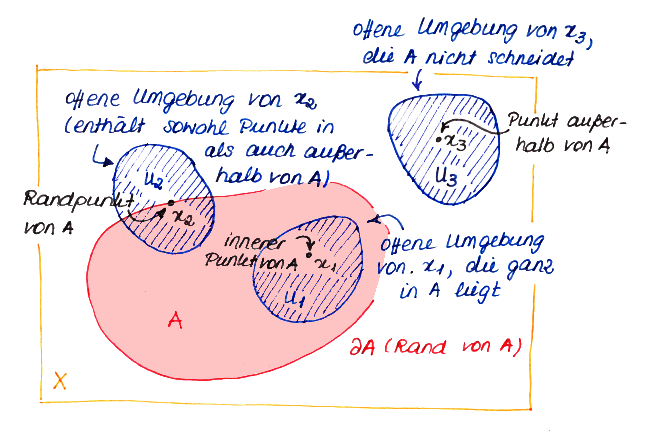 offene Umgebung von x₃,
die A nicht schneidet
offene Umgebung von x₂
(enthält sowohl Punkte in
als auch außer-
halb von A)
Punkt außer-
halb von A
x₃
U₃
U₂
Randpunkt
von A
x₂
innerer
Punkt von A
x₁
U₁
offene Umgebung
von. x₁, die ganz
in A liegt
A
∂A (Rand von A)
X